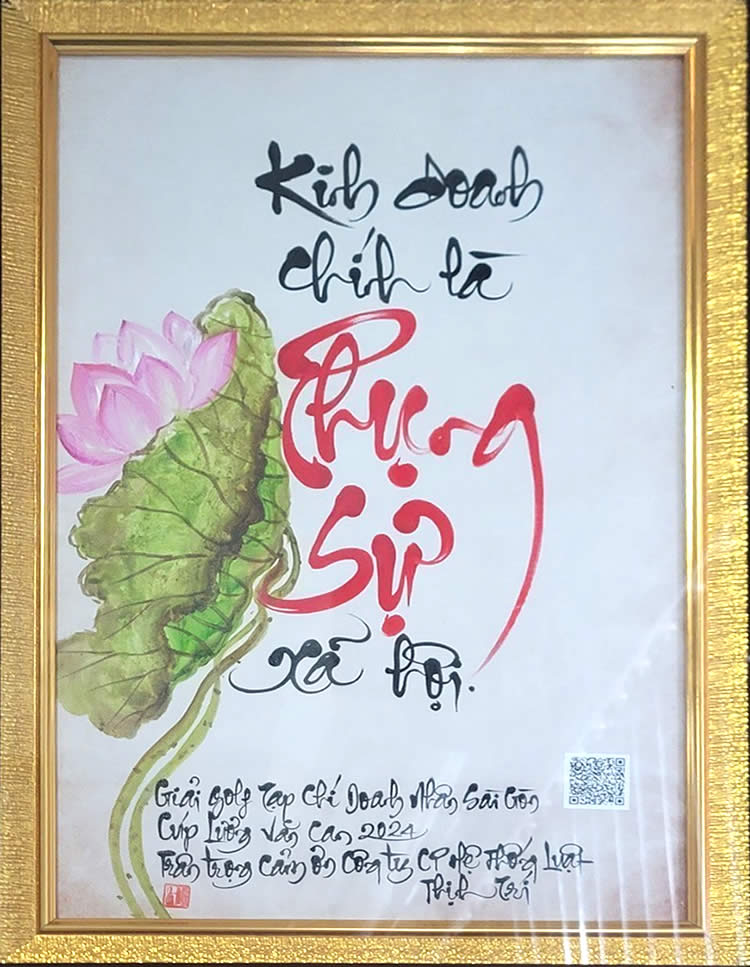 Kinh doanh
chính là
Phụng
Sự
xã hội.
Giải golf Tạp Chí Doanh Nhân Sài Gòn
Cúp Lương Văn Can 2024
Trân trọng cảm ơn Công ty CP Hệ Thống Luật
Thịnh Trí